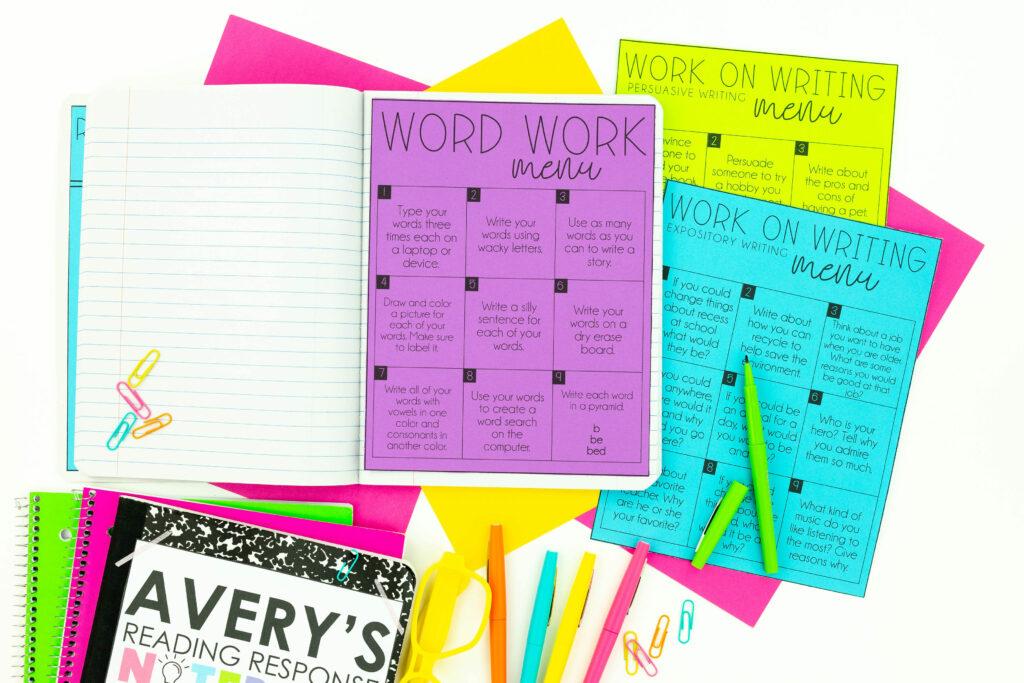 WORD WORK
menu
1
Type your
words three
times each on
a laptop or
device.
2
Write your
words using
wacky letters.
3
Use as many
words as you
can to write a
story.
4
Draw and color
a picture for
each of your
words. Make sure
to label it.
5
Write a silly
sentence for
each of your
words.
6
Write your
words on a
dry erase
board.
7
Write all of your
words with
vowels in one
color and
consonants in
another color.
8
Use your words
to create a
word search
on the
computer.
9
Write each word
in a pyramid.
b
be
bed
WORK ON WRITING
PERSUASIVE WRITING
menu
2
Persuade
someone to try
a hobby you
3
Write about
the pros and
cons of
having a pet.
WORK ON WRITING
EXPOSITORY WRITING
menu
If you could
change things
about recess
at school
what would
they be?
2
Write about
how you can
recycle to
help save the
3
Think about a job
you want to have
when you are older.
What are some
reasons you would
be good at that
job?
you could
anywhere,
would it
and why
you go
there?
5
If you could be
6
Who is your
hero? Tell why
you admire
them so much.
about
favorite
teacher. Why
are he or she
your favorite?
8
If you could
9
What kind of
music do you
like listening to
the most? Give
reasons why.
AVERY'S
READING RESPONSE